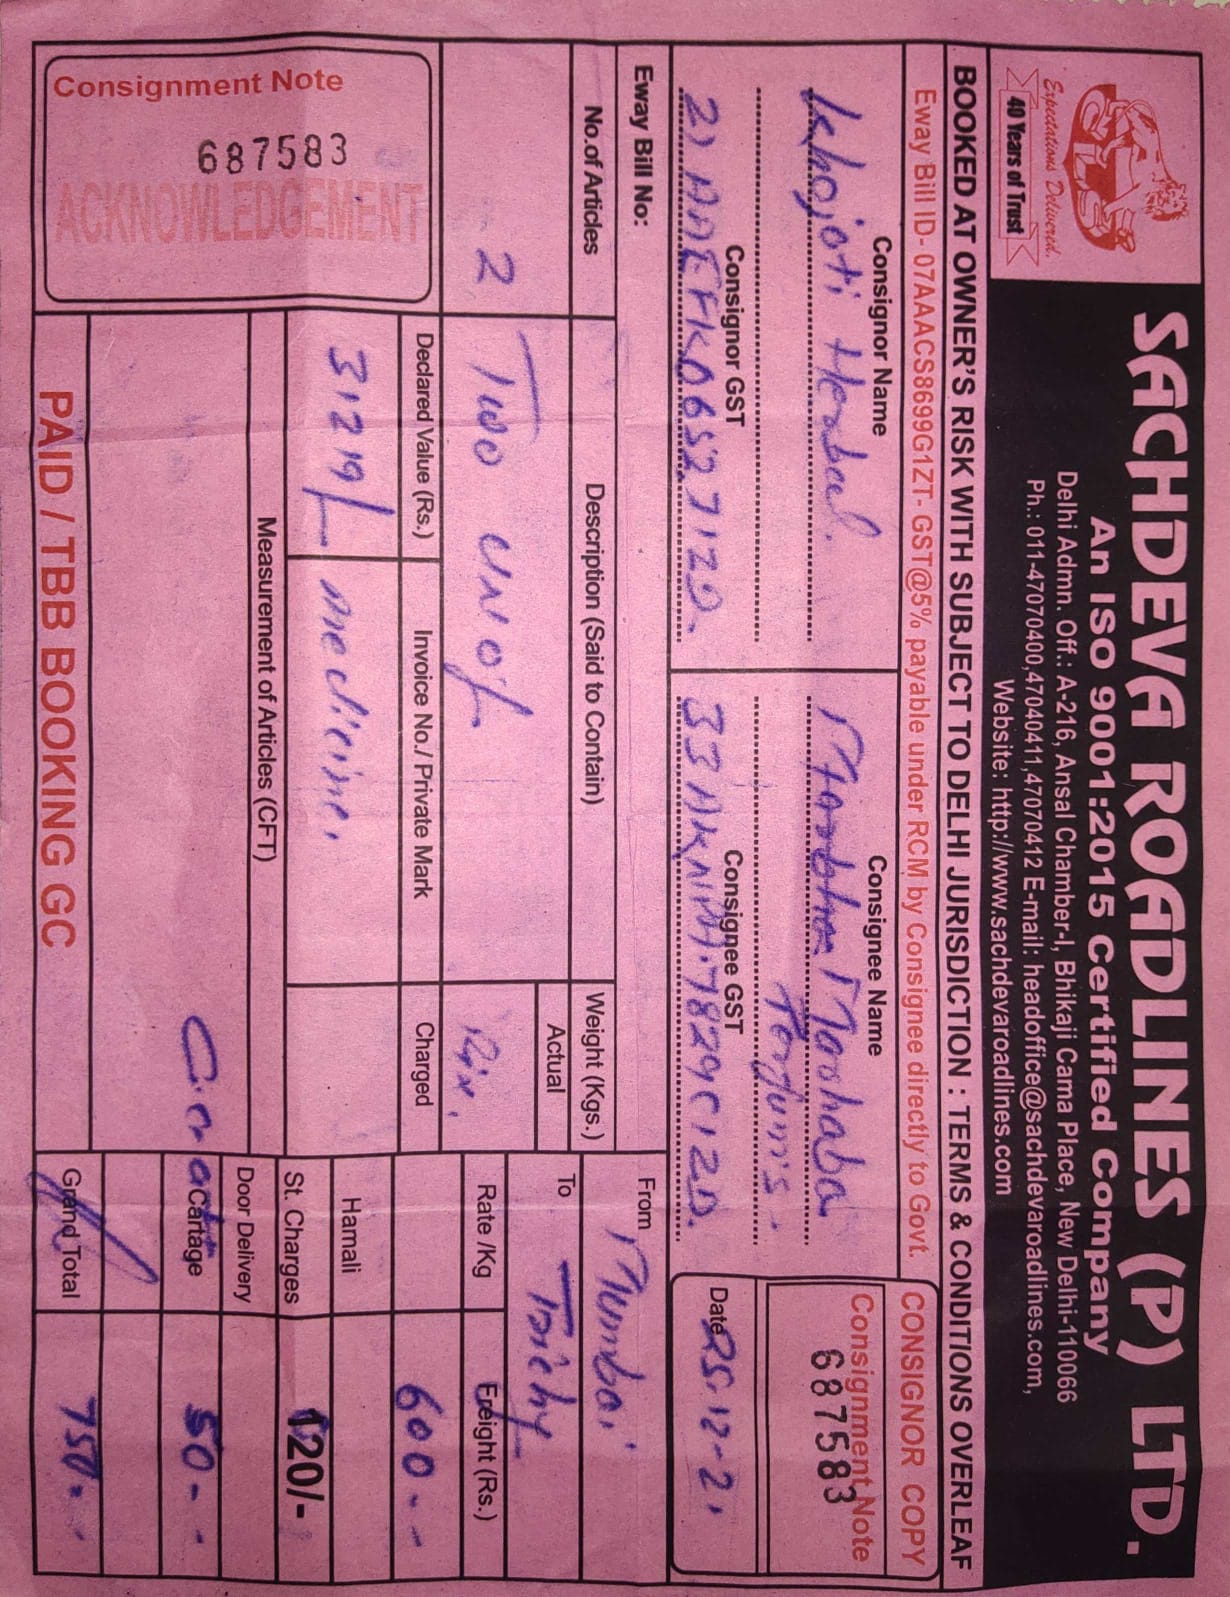 Expectations Delivered.
40 Years of Trust
SACHDEVA ROADLINES (P) LTD.
An ISO 9001:2015 Certified Company
Delhi Admn. Off.: A-216, Ansal Chamber-I, Bhikaji Cama Place, New Delhi-110066
Ph.: 011-47070400,47040411,47070412 E-mail: headoffice@sachdevaroadlines.com,
Website: http://www.sachdevaroadlines.com
BOOKED AT OWNER'S RISK WITH SUBJECT TO DELHI JURISDICTION : TERMS & CONDITIONS OVERLEAF
Eway Bill ID- 07AAACS8699G1ZT- GST@5% payable under RCM by Consignee directly to Govt.
CONSIGNOR COPY
Consignor Name
Herbal.
Consignee Name
Marhaba
Perfum's.
Consignment Note
687583
Consignor GST
Consignee GST
Date 25.12-21
Eway Bill No:
From Mumbai
To Trichy
No.of Articles
Description (Said to Contain)
Weight (Kgs.)
Actual
2
Two only
Fix.
Rate /Kg
Freight (Rs.)
Declared Value (Rs.)
Invoice No./ Private Mark
Charged
600-
3219/
medicine.
Hamali
St. Charges
120/-
Measurement of Articles (CFT)
Door Delivery
Cartage
50-
Grand Total
750-
Consignment Note
687583
ACKNOWLEDGEMENT
PAID / TBB BOOKING GC